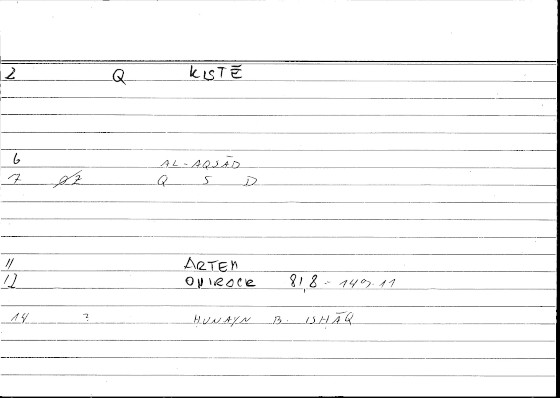 2 Q KISTĒ
6 AL-AQSĀD
7 Q S D
11 ARTEM
12 ONIROCR 81,8 - 149.11
14 ? HUNAYN B. ISHĀQ